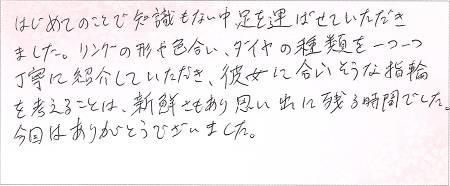 はじめてのことで知識もない中足を運ばせていただき
ました。リングの形や色合い、ダイヤの種類を一つ一つ
丁寧に紹介していただき、彼女に合いそうな指輪
を考えることは、新鮮さもあり思い出に残る時間でした。
今回はありがとうございました。